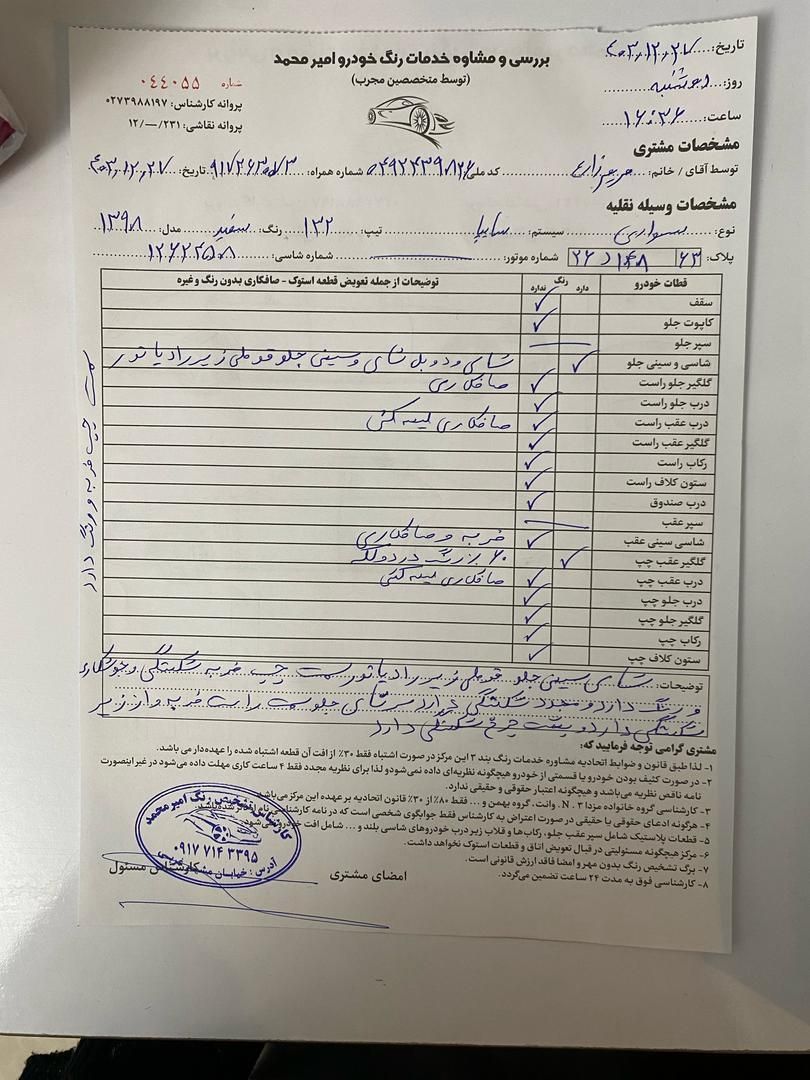 بررسی و مشاوه خدمات رنگ خودرو امیر محمد
(توسط متخصصین مجرب)
تاریخ: ۴۰۳,۱۲,۲۷
روز: دوشنبه
ساعت: ۱۶:۳۶
شماره ۰۴۴۰۵۵
پروانه کارشناس: ۰۲۷۳۹۸۸۱۹۷
پروانه نقاشی: ۱۲/—/۲۳۱
مشخصات مشتری
توسط آقای / خانم: کد ملی: شماره همراه: تاریخ: ۴۰۳,۱۲,۲۷
مشخصات وسیله نقلیه
نوع: سواری سیستم: سایپا تیپ: ۱۳۲ رنگ: سفید مدل: ۱۳۹۸
پلاک: ۶۳ ۱۴۸ د ۲۶ شماره موتور: شماره شاسی:
قطعات خودرو رنگ دارد ندارد توضیحات از جمله تعویض قطعه استوک - صافکاری بدون رنگ و غیره
سقف ✓
کاپوت جلو ✓
سپر جلو —
شاسی و سینی جلو ✓ شاسی و دوبل شاسی و سینی جلو قوطی زیر رادیاتور
گلگیر جلو راست ✓ صافکاری
درب جلو راست ✓
درب عقب راست ✓ صافکاری لیسه کشی
گلگیر عقب راست ✓
رکاب راست ✓
ستون کلاف راست ✓
درب صندوق ✓
سپر عقب —
شاسی سینی عقب ✓ ضربه و صافکاری
گلگیر عقب چپ ✓ ۶۰ بزرگ در دولکه
درب عقب چپ ✓ صافکاری لیسه کشی
درب جلو چپ ✓
گلگیر جلو چپ ✓
رکاب چپ ✓
ستون کلاف چپ ✓
سمت چپ ضربه و رنگ دارد
توضیحات: شاسی سینی جلو قوطی زیر رادیاتور سمت چپ ضربه شکستگی و جوشکاری
و رنگ دارد و مجدد شکستگی دارد سرشاسی جلو سمت راست ضربه و از زیر
شکستگی دارد و پشت چرخ شکستگی دارد
مشتری گرامی توجه فرمایید که:
۱- لذا طبق قانون و ضوابط اتحادیه مشاوره خدمات رنگ بند ۳ این مرکز در صورت اشتباه فقط ۳۰٪ از افت آن قطعه اشتباه شده را عهده‌دار می باشد.
۲- در صورت کثیف بودن خودرو یا قسمتی از خودرو هیچگونه نظریه‌ای داده نمی‌شود و لذا برای نظریه مجدد فقط ۴ ساعت کاری مهلت داده می‌شود در غیر اینصورت
نامه ناقص نظریه می‌باشد و هیچگونه اعتبار حقوقی و حقیقی ندارد.
۳- کارشناسی گروه خانواده مزدا ۳ . N وانت، گروه بهمن و ... فقط ۸۰٪ از ۳۰٪ قانون اتحادیه بر عهده این مرکز می‌باشد.
۴- هرگونه ادعای حقوقی یا حقیقی در صورت اعتراض به کارشناس فقط جوابگوی شخصی است که در نامه کارشناسی نام او قید شده باشد.
۵- قطعات پلاستیک شامل سپر عقب جلو، رکاب‌ها و قلاب زیر درب خودروهای شاسی بلند و ... شامل افت خودرو نمی‌شود.
۶- مرکز هیچگونه مسئولیتی در قبال تعویض اتاق و قطعات استوک نخواهد داشت.
۷- برگ تشخیص رنگ بدون مهر و امضا فاقد ارزش قانونی است.
۸- کارشناسی فوق به مدت ۲۴ ساعت تضمین می‌گردد.
امضای مشتری
کارشناس مسئول
رنگ امیر محمد
۰۹۱۷ ۷۱۴ ۳۳۹۵
آدرس: خیابان